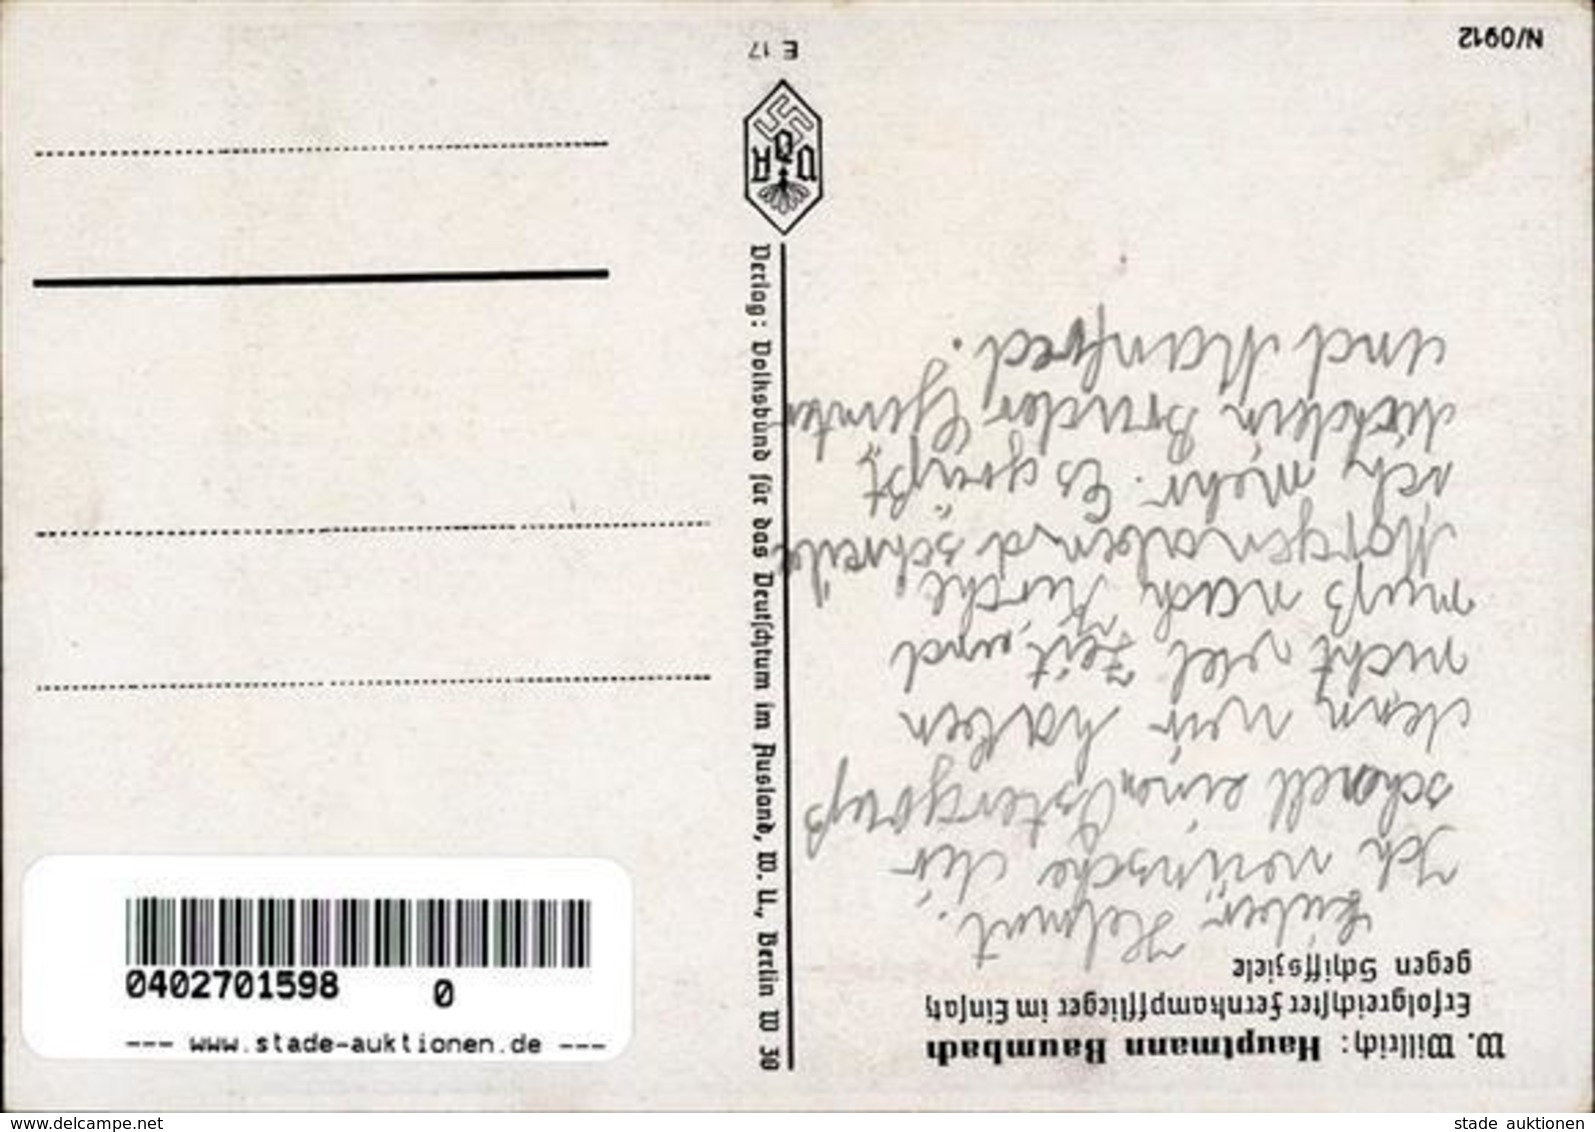 W. Willrich: Hauptmann Baumbach
Erfolgreichster Fernkampfflieger im Einsatz
gegen Schiffsziele
Lieber Helmut.
Ich wünsche dir
schnell einen Ostergruß
denn wir haben
nicht viel Zeit, und
muß nach Kirche,
Morgenabend schreibe
ich mehr. Es grüßt,
dich dein Bruder Günter
und Manfred.
N/0912
E 17
VDA
Verlag: Volksbund für das Deutschtum im Ausland, W. U., Berlin W 30
0402701598 0
--- www.stade-auktionen.de ---
www.delcampe.net
stade auktionen